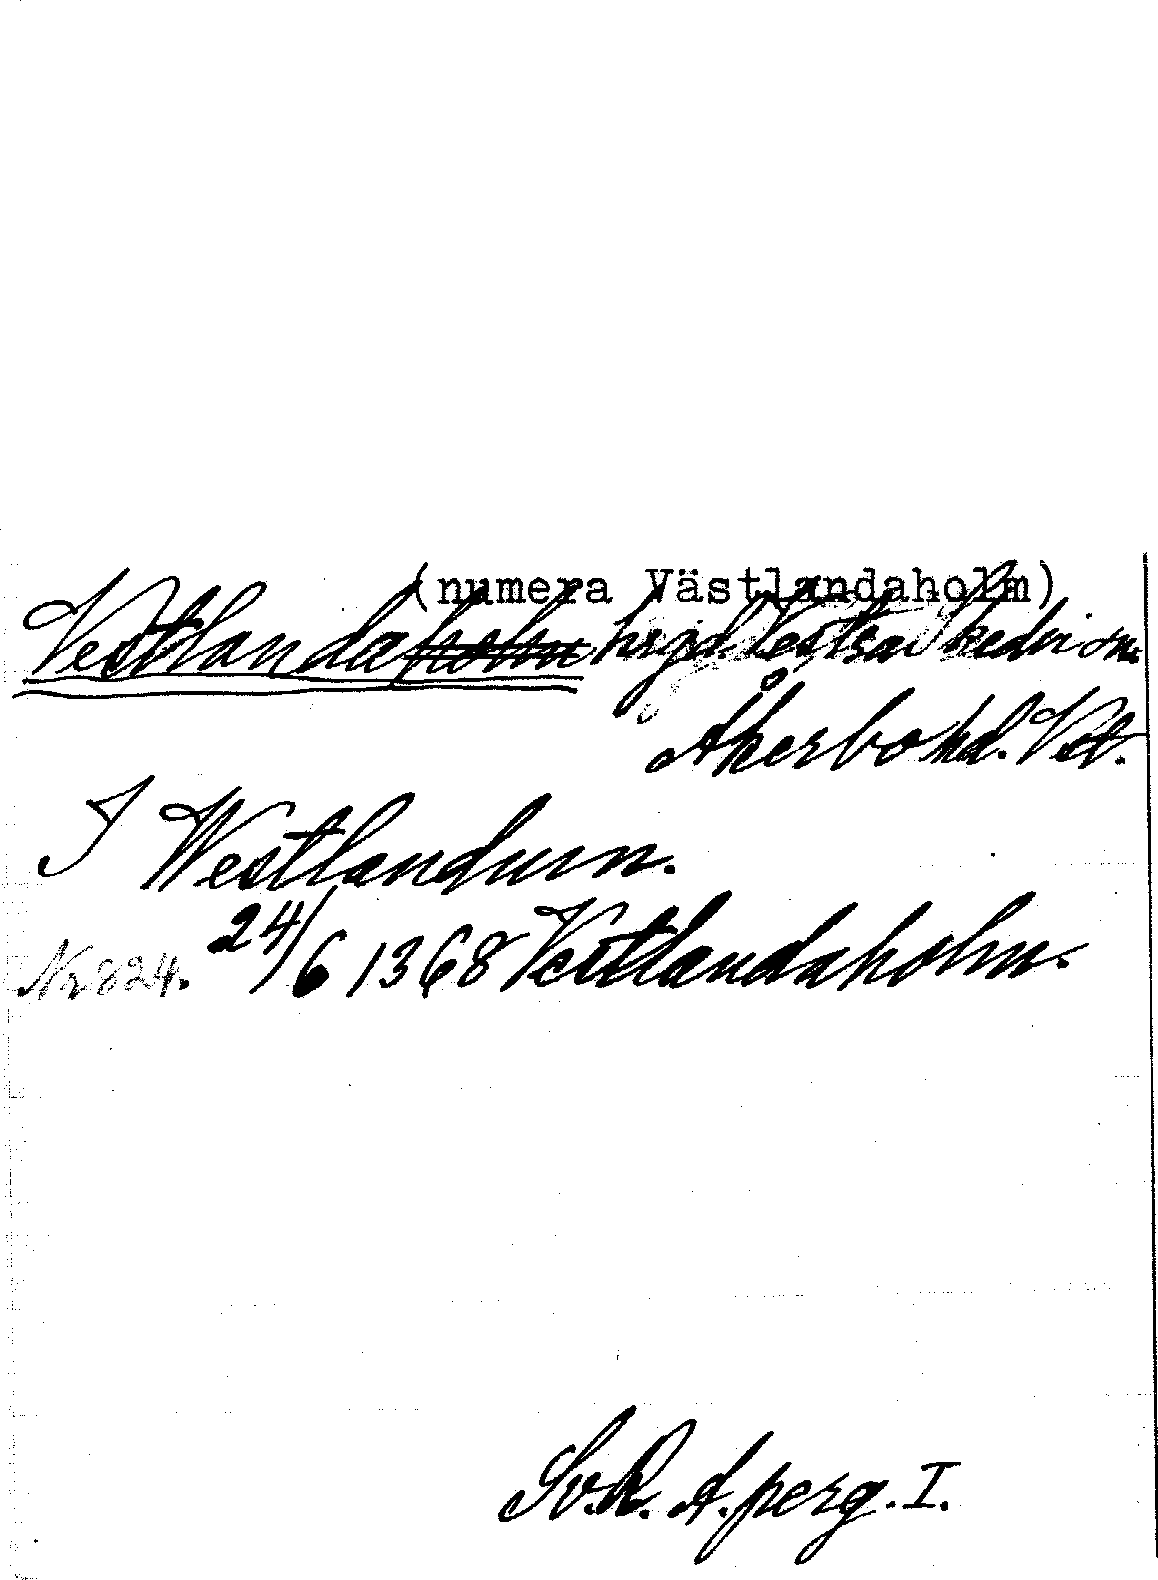 (numera Västlandaholm)
Vestlandaholm hrgd. Vestra Skedvi sn.
Åkerbo hd. Vstl.
I Westlandum.
Nr 824. 24/6 1368 Vestlandaholm.
Sv. R. A. perg. I.